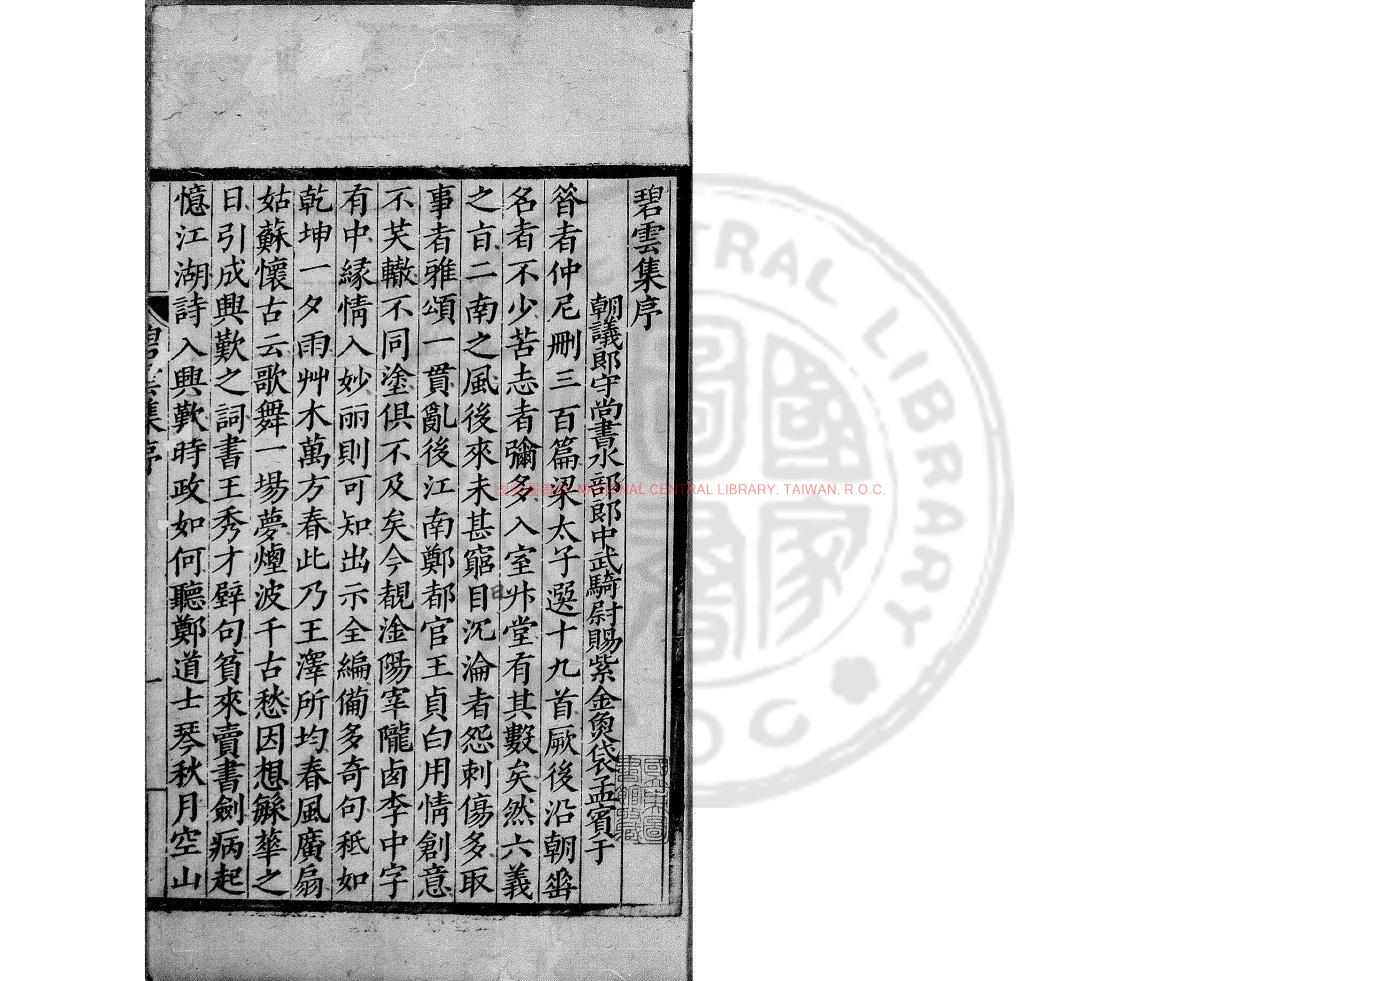 碧雲集序
朝議郎守尚書水部郎中武騎尉賜紫金魚袋孟賓于
昝者仲尼刪三百篇梁太子選十九首厥後沿朝垂
名者不少苦志者彌多入室升堂有其數矣然六義
之言二南之風後來未甚窮目沉淪者怨刺傷多取
事者雅頌一貫亂後江南鄭都官王貞白用情創意
不共轍不同塗俱不及矣今覩淦陽宰隴西李中字
有中緣情入妙丽則可知出示全編備多奇句秪如
乾坤一夕雨艸木萬方春此乃王澤所均春風廣扇
姑蘇懷古云歌舞一場夢煙波千古愁因想繇華之
日引成興歎之詞書王秀才壁句貧來賣書劍病起
憶江湖詩入興歎時政如何聽鄭道士琴秋月空山
碧雲集序
一
NATIONAL CENTRAL LIBRARY, TAIWAN, R.O.C.